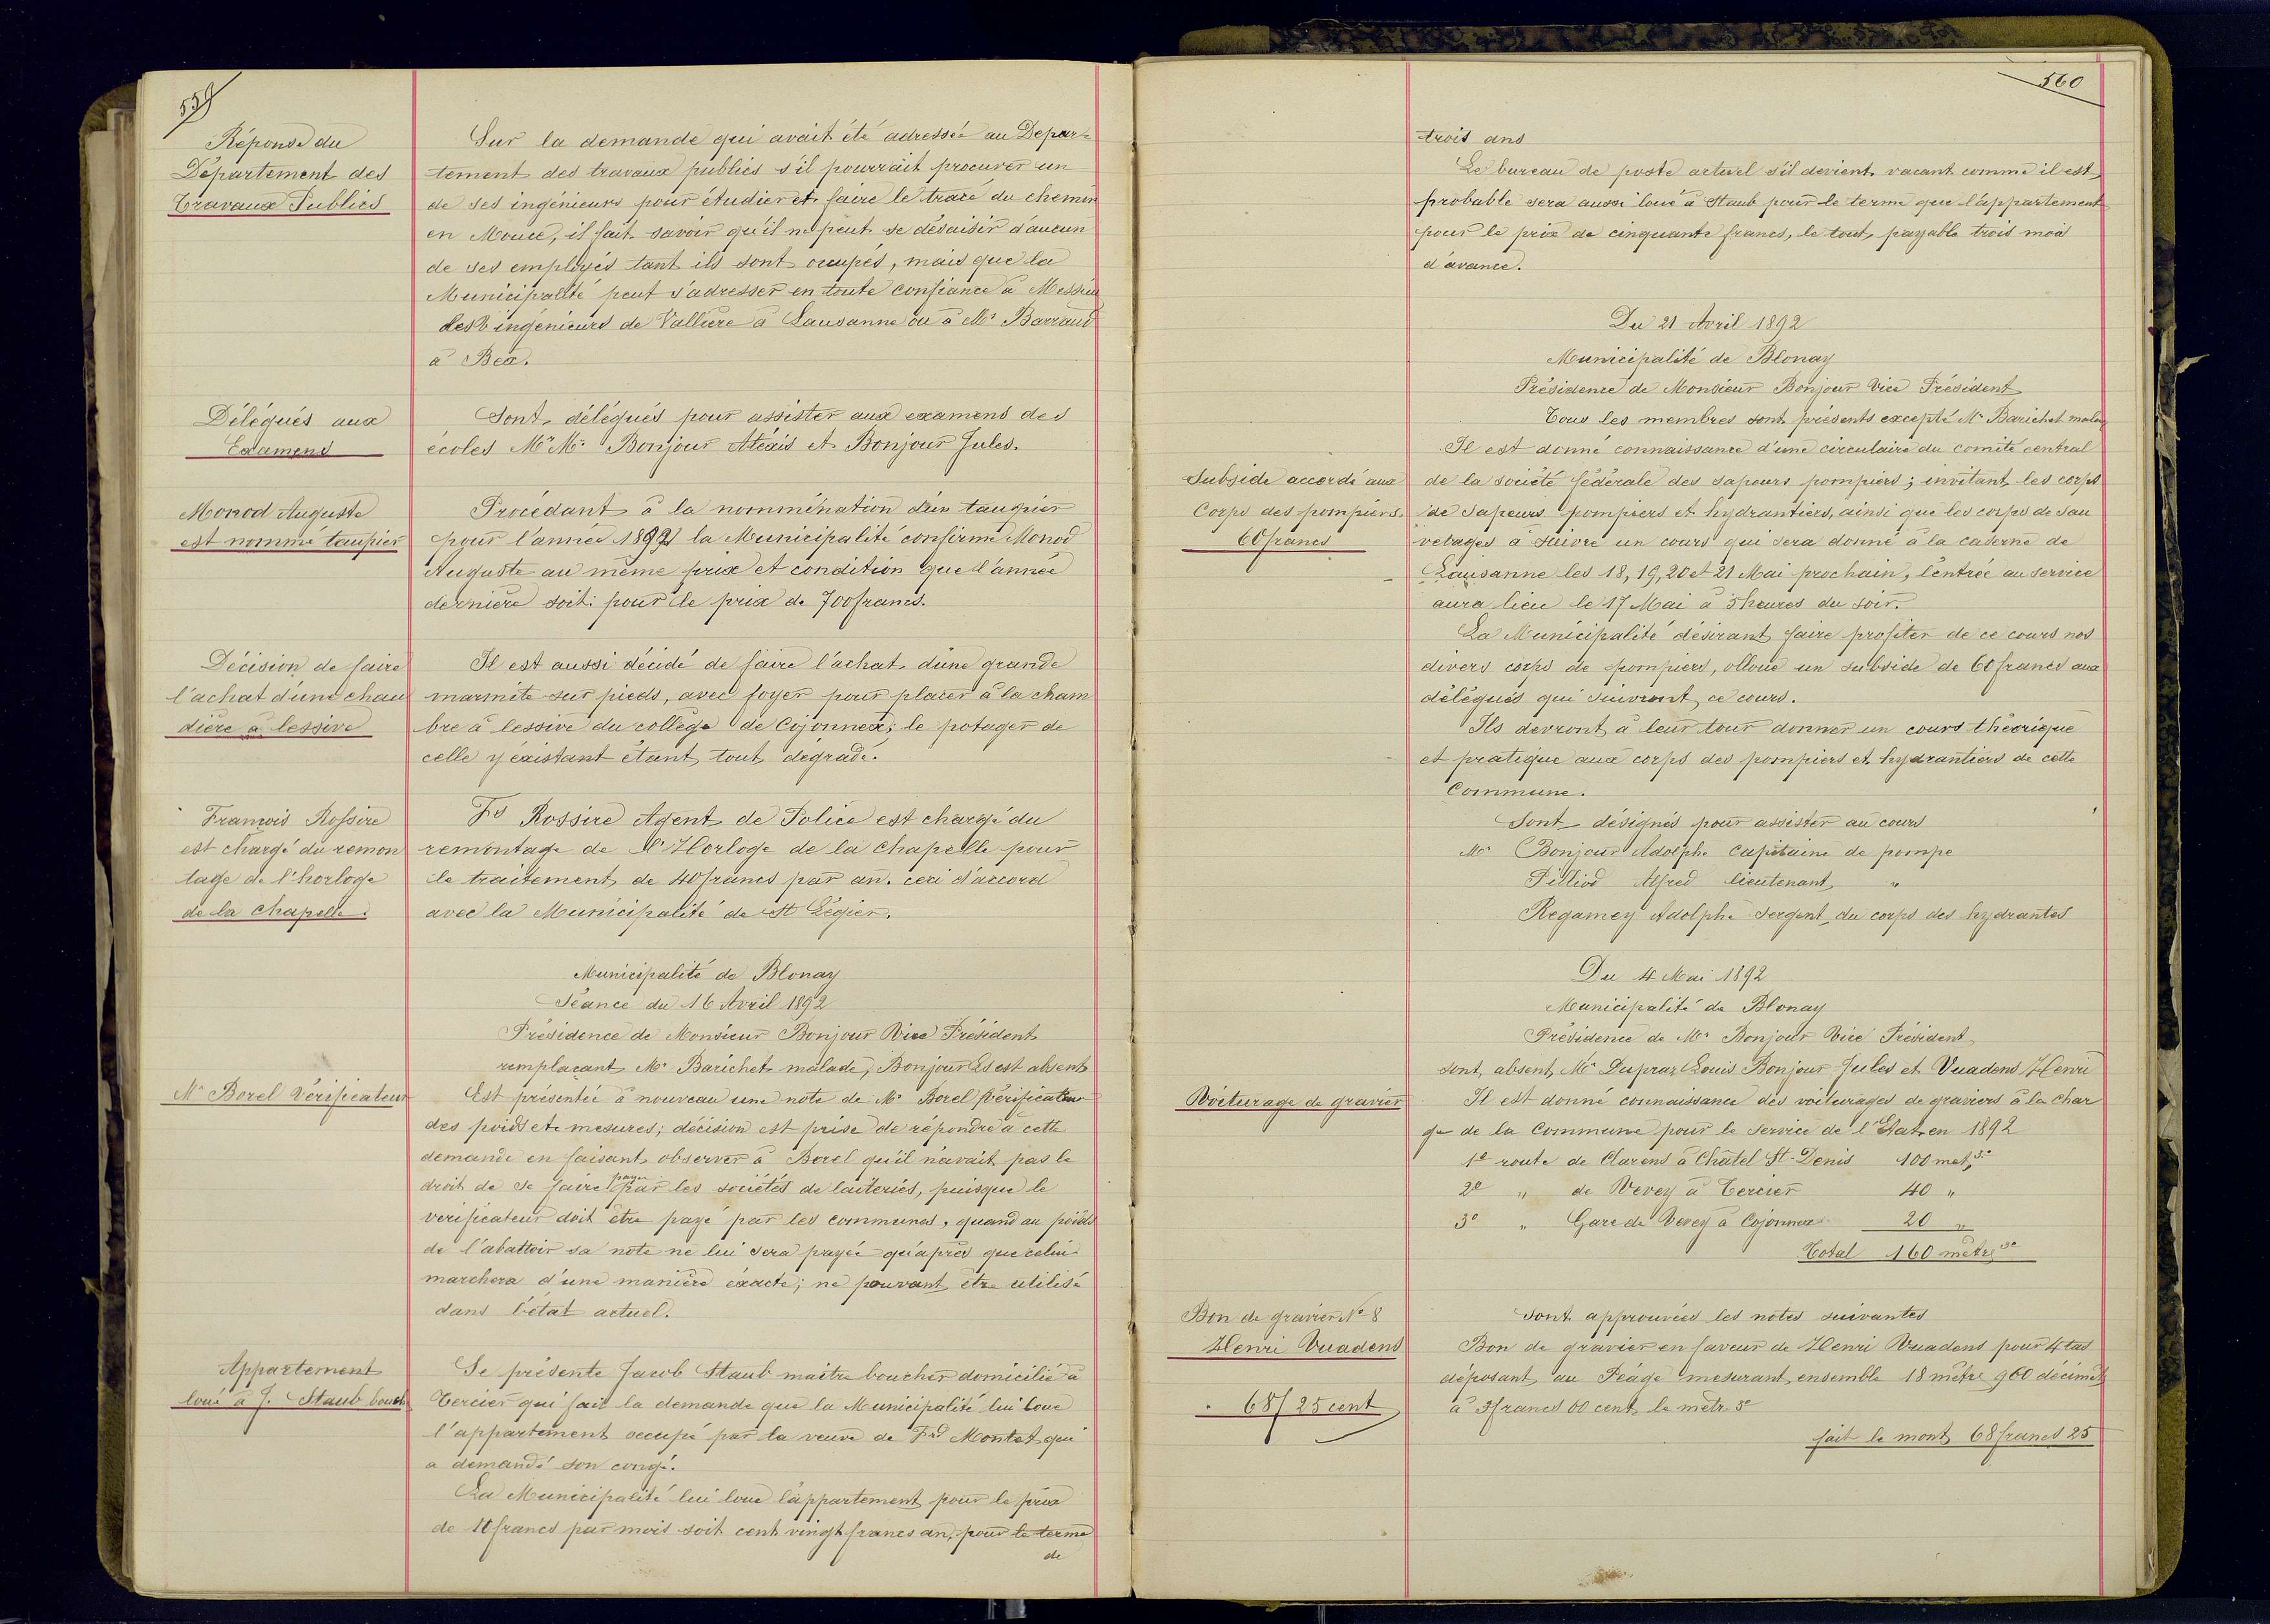 559
Réponse du
Département des
Travaux Publics
Sur la demande qui avait été adressée au Depar-
tement des travaux publics s'il pourrait procurer un
de ses ingénieurs pour étudier et faire le tracé du chemin
en Mouce, il fait savoir qu'il ne peut se désaisir d'aucun
de ses employés tant ils sont occupés, mais que la
Municipalité peut s'adresser en toute confiance à Messieu
les ingénieurs de Vallière à Lausanne ou à Mr Barraud
à Bex.
Délégués aux
Examens
Sont délégués pour assister aux examens des
écoles Mr Mr Bonjour Alexis et Bonjour Jules.
Monod Auguste
est nommé taupier
Procédant à la nomménation d'un taupier
pour l'année 1892 la Municipalité confirme Monod
Auguste au même prix et condition que l'année
dernière soit: pour le prix de 700 francs.
Décision de faire
l'achat d'une chau
dière à lessive
Il est aussi décidé de faire l'achat d'une grande
marmite sur pieds, avec foyer pour placer à la cham
bre à lessive du collège de Cojonnex; le potager de
celle y éxistant étant tout dégradé.
François Rossire
est chargé du remon
tage de l'horloge
de la chapelle.
Fs Rossire Agent de Police est chargé du
remontage de l'Horloge de la chapelle pour
le traitement de 40 francs par an. ceci d'accord
avec la Municipalité de St Légier.
Municipalité de Blonay
Séance du 16 Avril 1892
Présidence de Monsieur Bonjour Vice Président
remplaçant Mr Barichet malade, Bonjour Ls est absent
Mr Borel Vérificateur
Est présentée à nouveau une note de Mr Borel Vérificateur
des poids et mesures; décision est prise de répondre à cette
demande en faisant observer à Borel qu'il n'avait pas le
droit de se faire payer par les sociétés de laiteries, puisque le
verificateur doit être payé par les communes, quand au poids
de l'abattoir sa note ne lui sera payée qu'après que celui-
marchera d'une manière éxacte; ne pouvant être utilisé
dans l'état actuel.
Appartement
loué à J. Staub bouch
Se présente Jacob Staub maître boucher domicilié à
Tercier qui fait la demande que la Municipalité lui loue
l'appartement occupé par la veuve de Frd Montet qui
a demandé son congé.
La Municipalité lui loue l'appartement pour le prix
de 10 francs par mois soit cent vingt francs an, pour le terme
de
560
trois ans
Le bureau de poste actuel s'il devient vacant comme il est
probable sera aussi loué à Staub pour le terme que l'appartement
pour le prix de cinquante francs, le tout payable trois mois
d'avance.
Du 21 Avril 1892
Municipalité de Blonay
Présidence de Monsieur Bonjour Vice Président
Tous les membres sont présents excepté Mr Barichet malad
Subside accordé aux
Corps des pompiers.
60 francs
Il est donné connaissance d'une circulaire du comité central
de la société fédérale des sapeurs pompiers; invitant les corps
de Sapeurs pompiers et hydrantiers, ainsi que les corps de sau
vetages à suivre un cours qui sera donné à la caserne de
Lausanne les 18, 19, 20 et 21 Mai prochain, l'entrée au service
aura lieu le 17 Mai à 5 heures du soir.
La Municipalité désirant faire profiter de ce cours nos
divers corps de pompiers, olloue un subside de 60 francs aux
délégués qui suivront ce cours.
Ils devront à leur tour donner un cours théorique
et pratique aux corps des pompiers et hydrantiers de cette
Commune.
Sont désignés pour assister au cours
Mr Bonjour Adolphe capitaine de pompe
Pilliod Alfred lieutenant "
Regamey Adolphe sergent du corps des hydrantes
Du 4 Mai 1892
Municipalité de Blonay
Présidence de Mr Bonjour Vice Président
sont absent Mr Dupraz Louis Bonjour Jules et Vuadens Henri
Voiturage de gravier
Il est donné connaissance des voiturages de graviers à la char
ge de la Commune pour le service de l'Etat en 1892
1e route de Clarens à Châtel St-Denis 100 met. 3e
2e " de Vevey à Tercier 40 "
3e " Gare de Vevey à Cojonnex 20 "
Total 160 mètre 3e
Bon de gravier No 8
Henri Vuadens
68f 25 cent
Sont approuvées les notes suivantes
Bon de gravier en faveur de Henri Vuadens pour 4 tas
déposant au Péage mesurant ensemble 18 mètre 960 décimèt
à 3 francs 60 cent. le mètr. 3e
fait le mont 68 francs 25